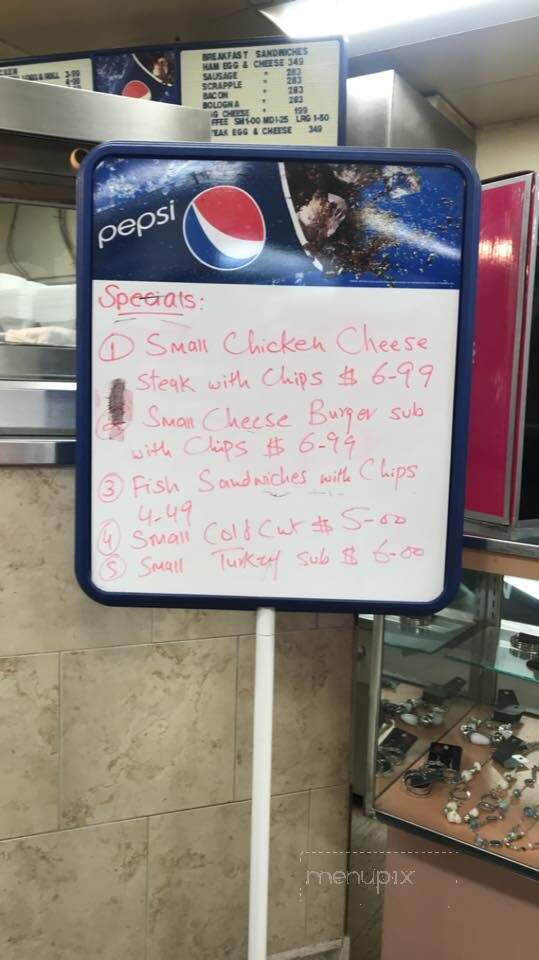 BREAKFAST SANDWICHES
HAM EGG & CHEESE 349
SAUSAGE " 283
SCRAPPLE " 283
BACON " 283
BOLOGNA " 283
CHEESE 199
SM 1-00 MD 1-25 LRG 1-50
EGG & CHEESE 349
ROLL 3-99
pepsi
Specials:
① Small Chicken Cheese
Steak with Chips $ 6-99
Small Cheese Burger sub
with Chips $ 6-99
③ Fish Sandwiches with Chips
4-49
④ Small Cold Cut $ 5-00
⑤ Small Turkey sub $ 6-00
menupix